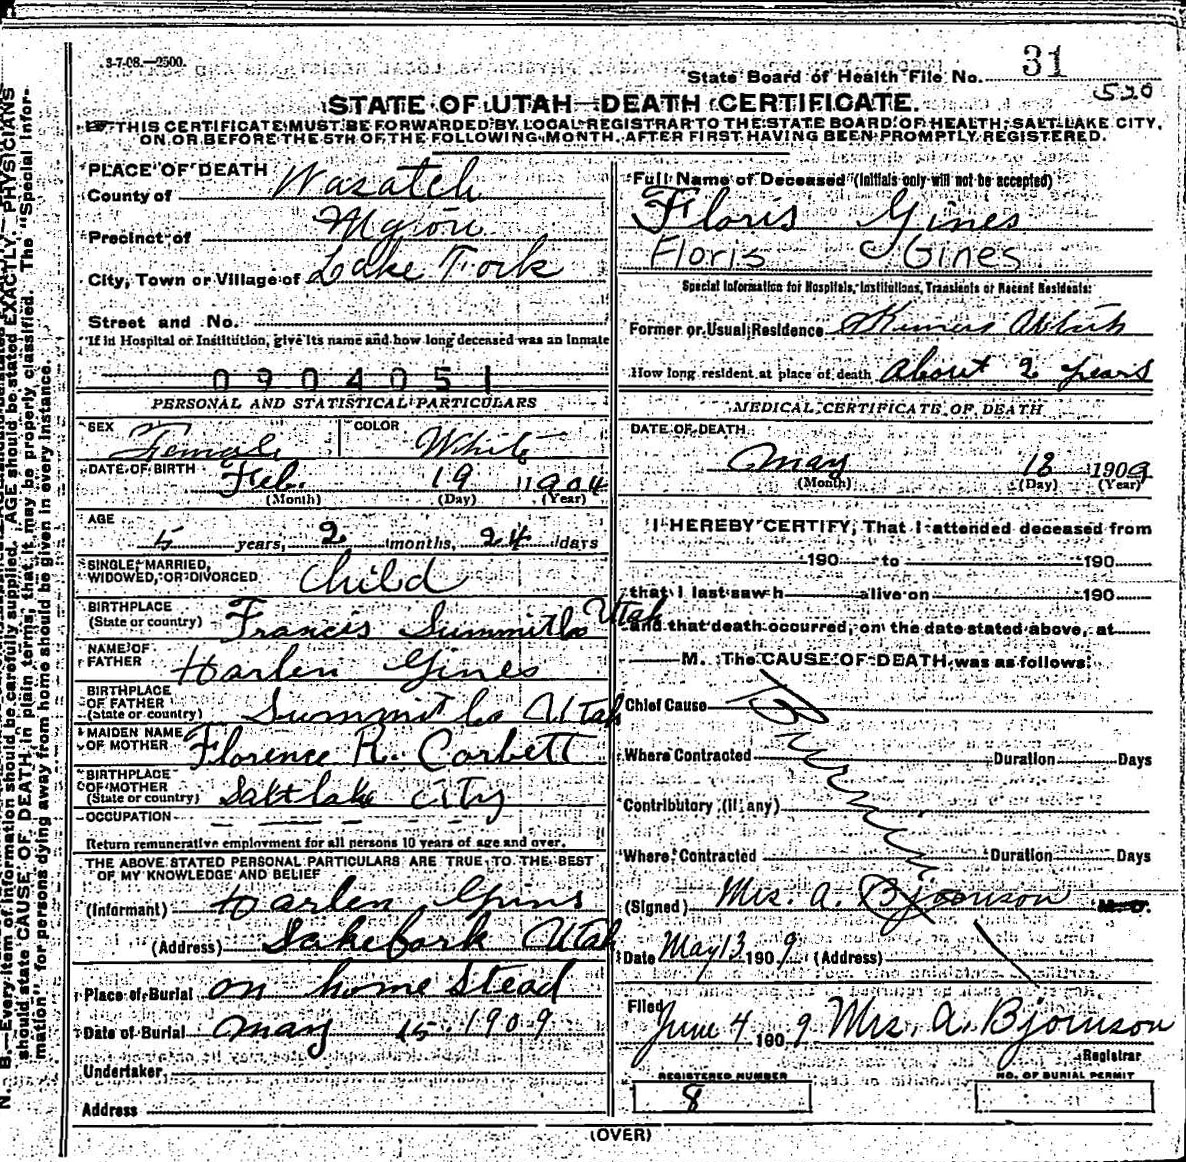 3-7-08.—2500.
State Board of Health File No. 31
520
STATE OF UTAH—DEATH CERTIFICATE.
THIS CERTIFICATE MUST BE FORWARDED BY LOCAL REGISTRAR TO THE STATE BOARD OF HEALTH, SALT LAKE CITY,
ON OR BEFORE THE 5TH OF THE FOLLOWING MONTH, AFTER FIRST HAVING BEEN PROMPTLY REGISTERED.
PLACE OF DEATH
County of Wasatch
Precinct of
City, Town or Village of Lake Fork
Street and No.
If in Hospital or Institution, give its name and how long deceased was an inmate
0904051
PERSONAL AND STATISTICAL PARTICULARS
SEX Female
COLOR White
DATE OF BIRTH Feb. 19 1904
(Month) (Day) (Year)
AGE 5 years, 2 months, 24 days
SINGLE, MARRIED,
WIDOWED, OR DIVORCED Child
BIRTHPLACE
(State or country) Francis Summit Co Utah
NAME OF
FATHER Harlen Gines
BIRTHPLACE
OF FATHER
(State or country) Summit Co Utah
MAIDEN NAME
OF MOTHER Florence R. Corbett
BIRTHPLACE
OF MOTHER
(State or country) Salt lake City
OCCUPATION
Return remunerative employment for all persons 10 years of age and over.
THE ABOVE STATED PERSONAL PARTICULARS ARE TRUE TO THE BEST
OF MY KNOWLEDGE AND BELIEF
(Informant) Harlen Gines
(Address) Lakefork Utah
Place of Burial on home Stead
Date of Burial May 15 1909
Undertaker,
Address
Full Name of Deceased (Initials only will not be accepted)
Floris Gines
Floris Gines
Special Information for Hospitals, Institutions, Transients or Recent Residents:
Former or Usual Residence
How long resident at place of death About 2 years
MEDICAL CERTIFICATE OF DEATH
DATE OF DEATH
May 13 1909
(Month) (Day) (Year)
I HEREBY CERTIFY, That I attended deceased from
190 to 190
that I last saw h alive on 190
and that death occurred, on the date stated above, at
M. The CAUSE OF DEATH was as follows:
Chief Cause
Where Contracted Duration Days
Contributory (if any)
Where Contracted Duration Days
(Signed) Mrs. A. Bjornson M. D.
Date May 13 1909 (Address)
Filed June 4 1909 Mrs. A. Bjornson
Registrar
REGISTERED NUMBER
8
NO. OF BURIAL PERMIT
(OVER)
N. B.—Every item of information should be carefully supplied. AGE should be stated EXACTLY. PHYSICIANS
should state CAUSE OF DEATH in plain terms, that it may be properly classified. The "Special Infor-
mation" for persons dying away from home should be given in every instance.